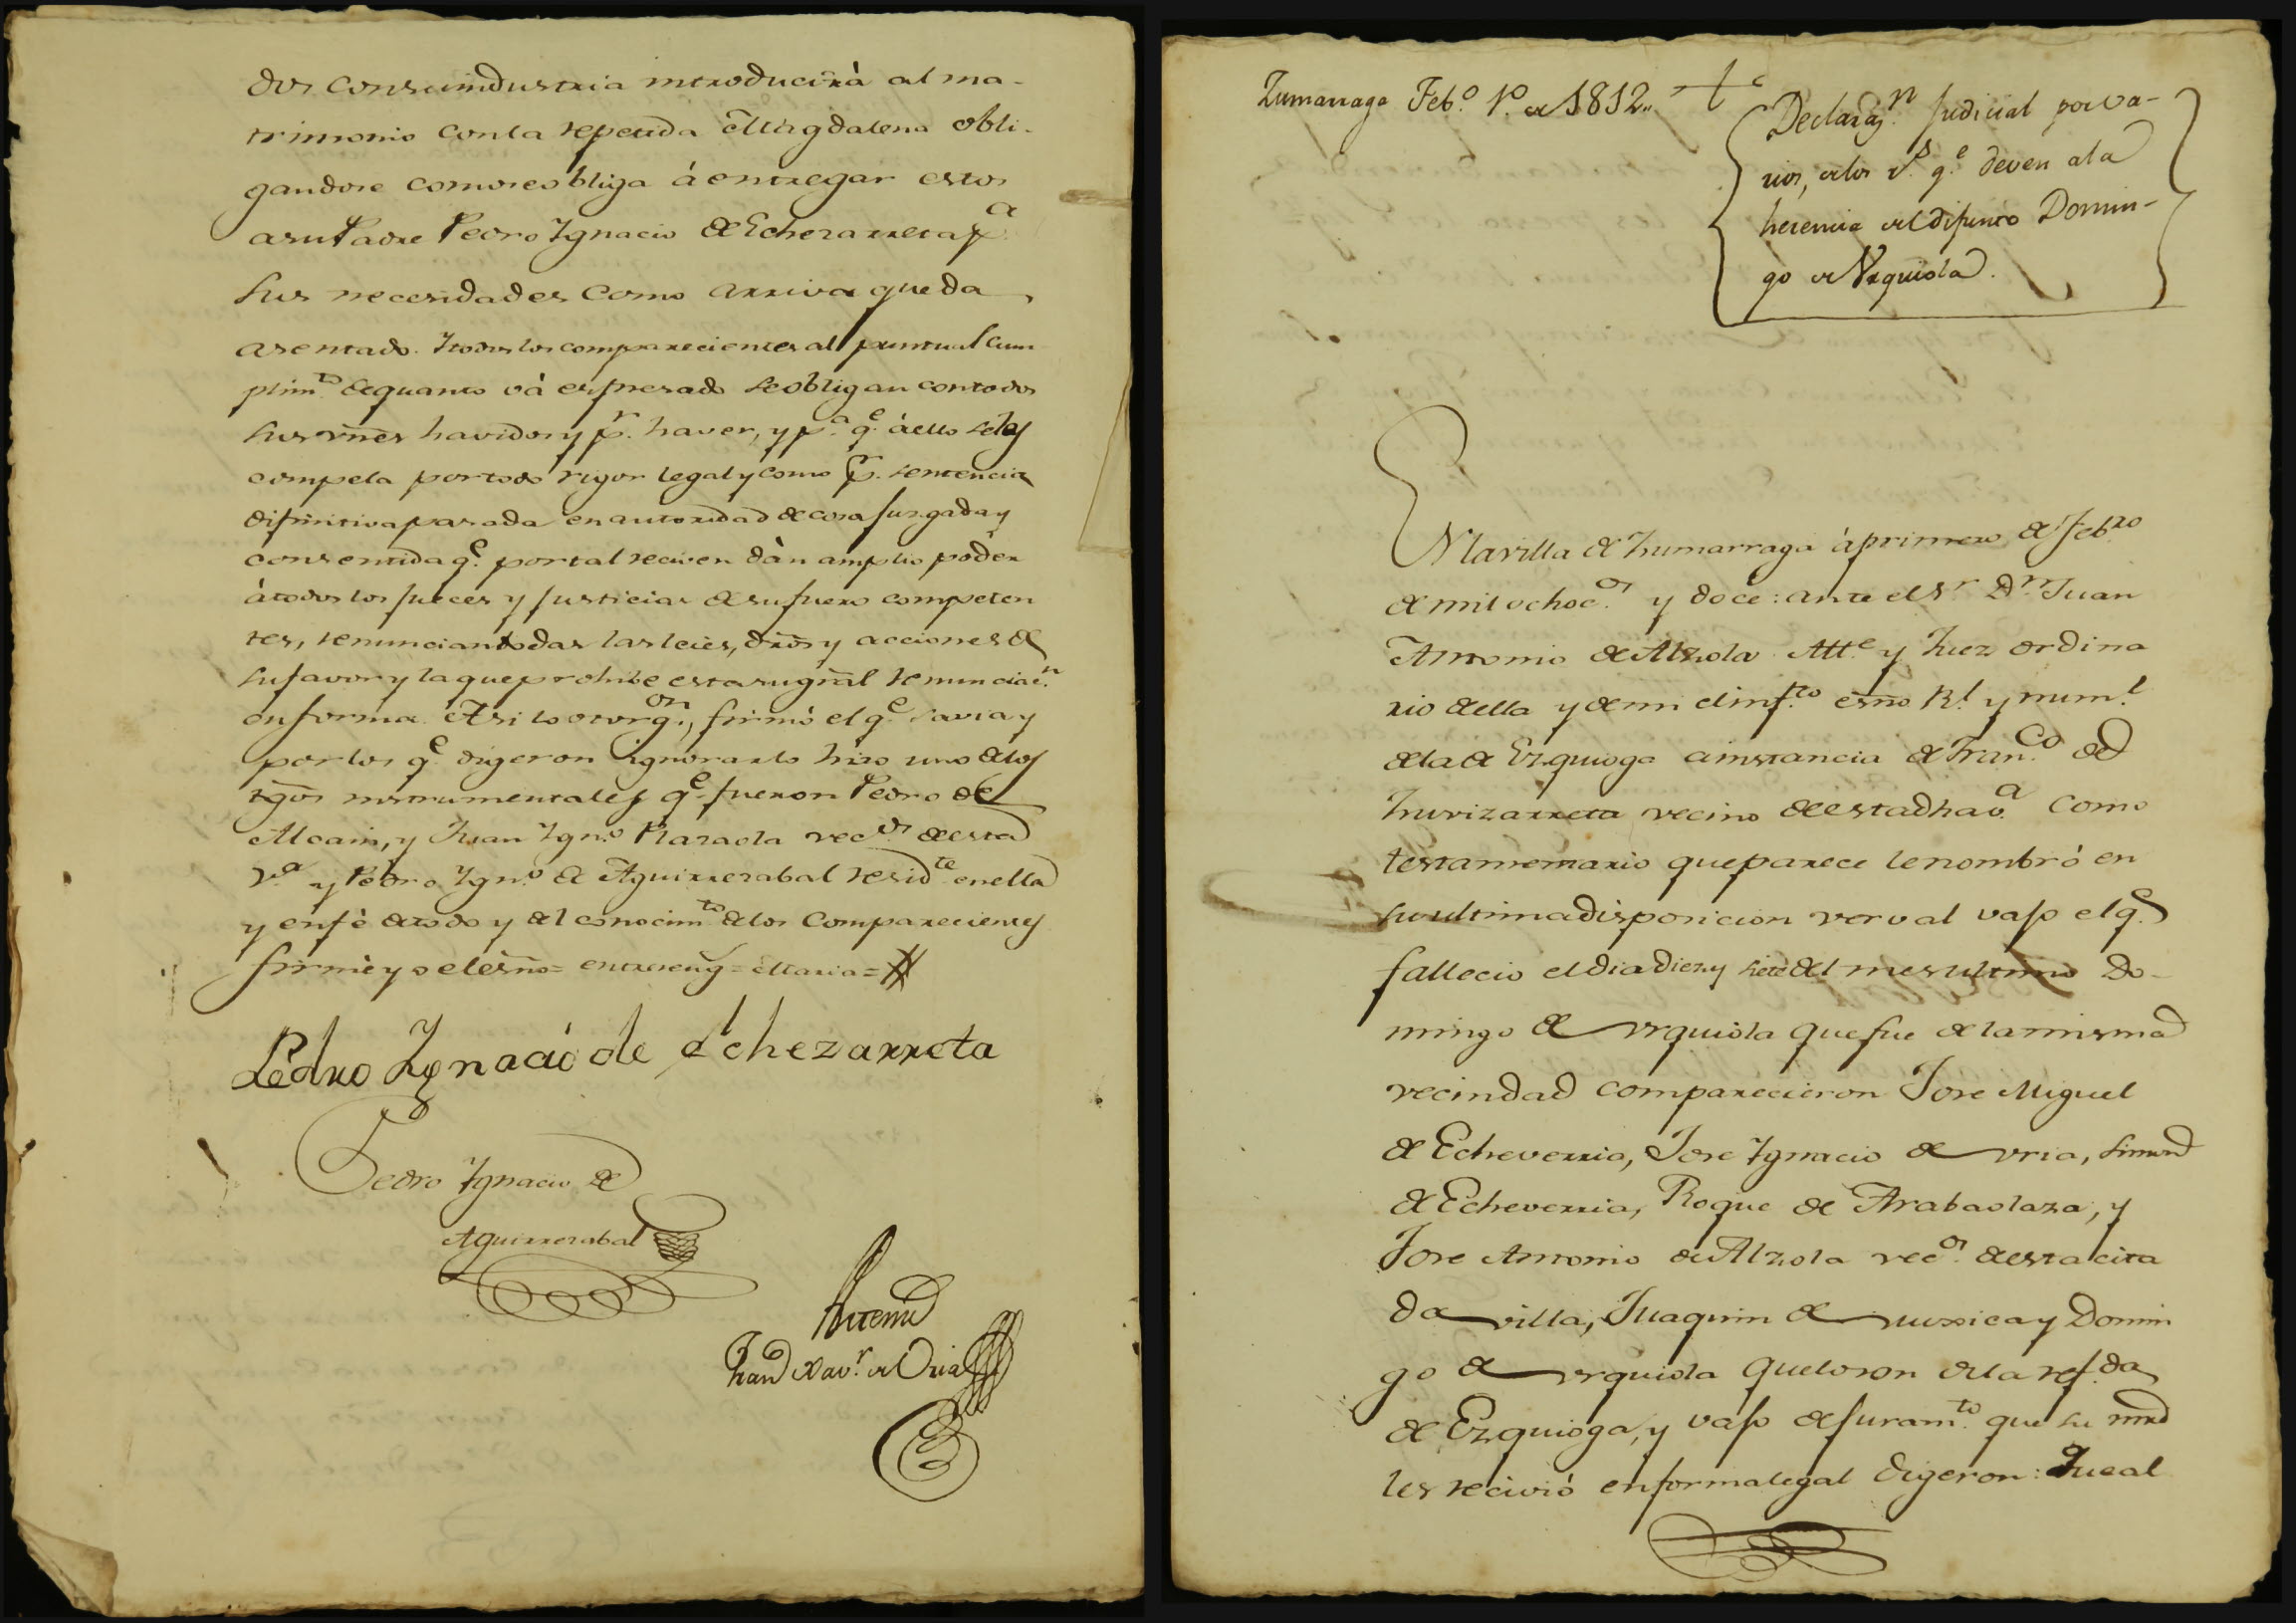 dos con su industria introducirà al ma-
trimonio con la repetida Magdalena obli-
gandose como se obliga á entregar estos
a su Padre Pedro Ygnacio de Echezarreta pª
sus necesidades como arriva queda
asentado. Y todos los comparecientes al puntual cum
plimto. de quanto vá espresado se obligan con todos
sus vñes havidos y pr. haver, y pª. qe. á ello seles
compela por todo rigor legal y como pr. sentencia
difinitiva pasada en autoridad de cosa juzgada y
consentida qe. por tal reciven dàn amplio poder
à todos los jueces y justicias de su fuero competen
tes, renuncian todas las leies, dros y acciones de
su favor y la que prohive esta su gral renunciacn.
en forma. Asi lo otorgon., firmó el qe. savia y
por los qe. digeron ignorarlo hizo uno de los
tgos instrumentales qe. fueron Pedro de
Alcain, y Juan Ygno. Plazaola vecos. de esta
Vª. y Pedro Ygno. de Aguirrezabal residte. en ella
y en fè de todo y del conocimto. de los comparecientes
firmè yo el esno = entrereng = Maria =
Pedro Ygnacio de Echezarreta
Pedro Ygnacio de
Aguirrezabal
Antemi
Juan Xavr. de Oria
Zumarraga Febo. 1º. de 1812.
Declaraζn. judicial por va-
rios, de los rs. qe. deven a la
herencia del difunto Domin-
go de Vrquiola.
En la villa de Zumarraga à primero de Febro
de mil ochocos. y doce: ante el Sr. Dn. Juan
Antonio de Alzola Alle. y Juez ordina
rio de ella y de mi el infto. esno Rl. y numl.
de la de Ezquioga a instancia de Franco. de
Yurrizarreta vecino de esta dha vª. como
testamentario que parece le nombró en
su ultima disposicion verval vajo el qe.
fallecio el dia diez y siete del mes ultimo Do-
mingo de vrquiola que fue de la misma
vecindad comparecieron Jose Miguel
de Echeverria, Jose Ygnacio de vria, Simon
de Echeverria, Roque de Arabaolaza, y
Jose Antonio de Alzola vecos. de esta cita
da villa, Juaquin de muxica y Domin
go de vrquiola que lo son de la refda.
de Ezquioga, y vajo de juramto. que su mrd
les recivió en forma legal digeron: Que al